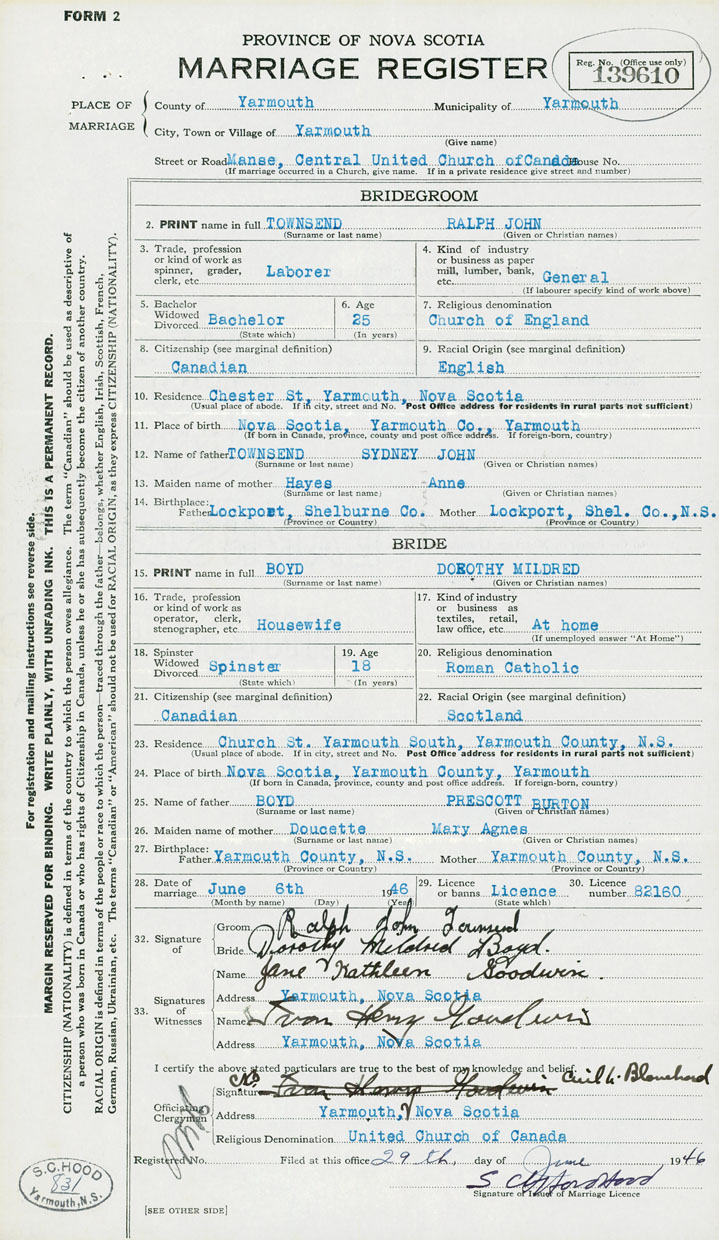 FORM 2
PROVINCE OF NOVA SCOTIA
MARRIAGE REGISTER
Reg. No. (Office use only)
139610
PLACE OF MARRIAGE
County of Yarmouth Municipality of Yarmouth
City, Town or Village of Yarmouth
(Give name)
Street or Road Manse, Central United Church of Canada House No.
(If marriage occurred in a Church, give name. If in a private residence give street and number)
BRIDEGROOM
2. PRINT name in full TOWNSEND RALPH JOHN
(Surname or last name) (Given or Christian names)
3. Trade, profession or kind of work as spinner, grader, clerk, etc. Laborer
4. Kind of industry or business as paper mill, lumber, bank, etc. General
(If labourer specify kind of work above)
5. Bachelor Widowed Divorced Bachelor
(State which)
6. Age 25
(In years)
7. Religious denomination
Church of England
8. Citizenship (see marginal definition)
Canadian
9. Racial Origin (see marginal definition)
English
10. Residence Chester St, Yarmouth, Nova Scotia
(Usual place of abode. If in city, street and No. Post Office address for residents in rural parts not sufficient)
11. Place of birth Nova Scotia, Yarmouth Co., Yarmouth
(If born in Canada, province, county and post office address. If foreign-born, country)
12. Name of father TOWNSEND SYDNEY JOHN
(Surname or last name) (Given or Christian names)
13. Maiden name of mother Hayes Anne
(Surname or last name) (Given or Christian names)
14. Birthplace: Father Lockport, Shelburne Co. Mother Lockport, Shel. Co., N.S.
(Province or Country) (Province or Country)
BRIDE
15. PRINT name in full BOYD DOROTHY MILDRED
(Surname or last name) (Given or Christian names)
16. Trade, profession or kind of work as operator, clerk, stenographer, etc Housewife
17. Kind of industry or business as textiles, retail, law office, etc. At home
(If unemployed answer "At Home")
18. Spinster Widowed Divorced Spinster
(State which)
19. Age 18
(In years)
20. Religious denomination
Roman Catholic
21. Citizenship (see marginal definition)
Canadian
22. Racial Origin (see marginal definition)
Scotland
23. Residence Church St. Yarmouth South, Yarmouth County, N.S.
(Usual place of abode. If in city, street and No. Post Office address for residents in rural parts not sufficient)
24. Place of birth Nova Scotia, Yarmouth County, Yarmouth
(If born in Canada, province, county and post office address. If foreign-born, country)
25. Name of father BOYD PRESCOTT BURTON
(Surname or last name) (Given or Christian names)
26. Maiden name of mother Doucette Mary Agnes
(Surname or last name) (Given or Christian names)
27. Birthplace: Father Yarmouth County, N.S. Mother Yarmouth County, N.S.
(Province or Country) (Province or Country)
28. Date of marriage June 6th 1946
(Month by name) (Day) (Year)
29. Licence or banns Licence
(State which)
30. Licence number 82160
32. Signature of
Groom Ralph John Townsend
Bride Dorothy Mildred Boyd.
33. Signatures of Witnesses
Name Jane Kathleen Goodwin.
Address Yarmouth, Nova Scotia
Name Ivan Henry Goodwin
Address Yarmouth, Nova Scotia
I certify the above stated particulars are true to the best of my knowledge and belief.
Officiating Clergyman
Signature Ivan Henry Goodwin Cecil W. Blanchard
Address Yarmouth, Nova Scotia
Religious Denomination United Church of Canada
Registered No. Filed at this office 29th, day of June 1946
S Clifford Hood
Signature of Issuer of Marriage Licence
[SEE OTHER SIDE]
S.C. HOOD
831
Yarmouth, N.S.
For registration and mailing instructions see reverse side.
MARGIN RESERVED FOR BINDING. WRITE PLAINLY, WITH UNFADING INK. THIS IS A PERMANENT RECORD.
CITIZENSHIP (NATIONALITY) is defined in terms of the country to which the person owes allegiance. The term "Canadian" should be used as descriptive of
a person who was born in Canada or who has rights of Citizenship in Canada, unless he or she has subsequently become the citizen of another country.
RACIAL ORIGIN is defined in terms of the people or race to which the person—traced through the father—belongs, whether English, Irish, Scottish, French,
German, Russian, Ukrainian, etc. The terms "Canadian" or "American" should not be used for RACIAL ORIGIN, as they express CITIZENSHIP (NATIONALITY).